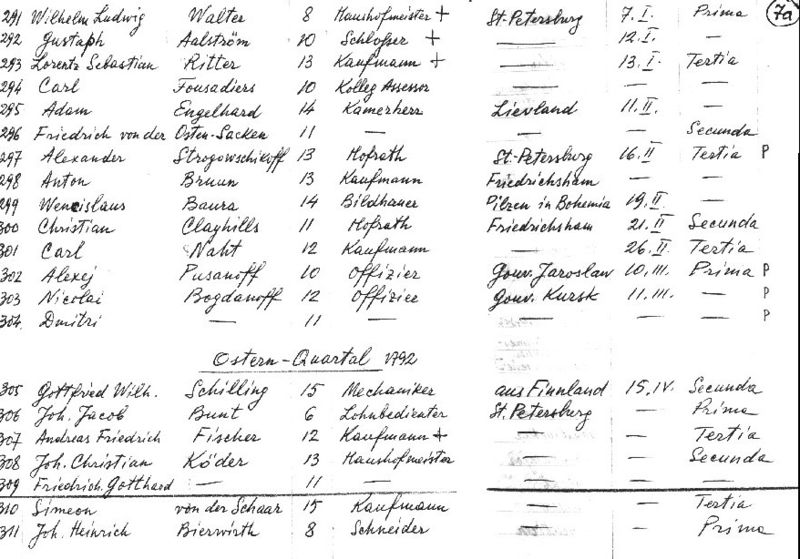 291 Wilhelm Ludwig Walter 8 Haushofmeister + St. Petersburg 7. I. Prima 7a
292 Gustaph Aalström 10 Schlosser + — 12. I. —
293 Lorentz Sebastian Ritter 13 Kaufmann + — 13. I. Tertia
294 Carl Fousadiers 10 Kolleg Assessor — — —
295 Adam Engelhard 14 Kamerherr Lievland 11. II. —
296 Friedrich von der Osten-Sacken 11 — — — Secunda
297 Alexander Strogowschikoff 13 Hofrath St-Petersburg 16. II Tertia P
298 Anton Bruun 13 Kaufmann Friedrichsham — —
299 Wencislaus Baura 14 Bildhauer Pilzen in Bohemia 19. II —
300 Christian Clayhills 11 Hofrath Friedrichsham 21. II Secunda
301 Carl Naht 12 Kaufmann — 26. II Tertia
302 Alexej Pusanoff 10 Offizier Gouv. Jaroslaw 10. III. Prima P
303 Nicolai Bogdanoff 12 Offizier Gouv. Kursk 11. III. — P
304. Dmitri — 11 — — — — P
Ostern-Quartal 1792
305 Gottfried Wilh. Schilling 15 Mechaniker aus Finnland 15. IV. Secunda
306 Joh. Jacob Bunt 6 Lohnbedienter St. Petersburg — Prima
307 Andreas Friedrich Fischer 12 Kaufmann + — — Tertia
308 Joh. Christian Köder 13 Haushofmeister — — Secunda
309 Friedrich Gotthard — 11 — — — —
310 Simeon von der Schaar 15 Kaufmann — — Tertia
311 Joh. Heinrich Bierwirth 8 Schneider — — Prima